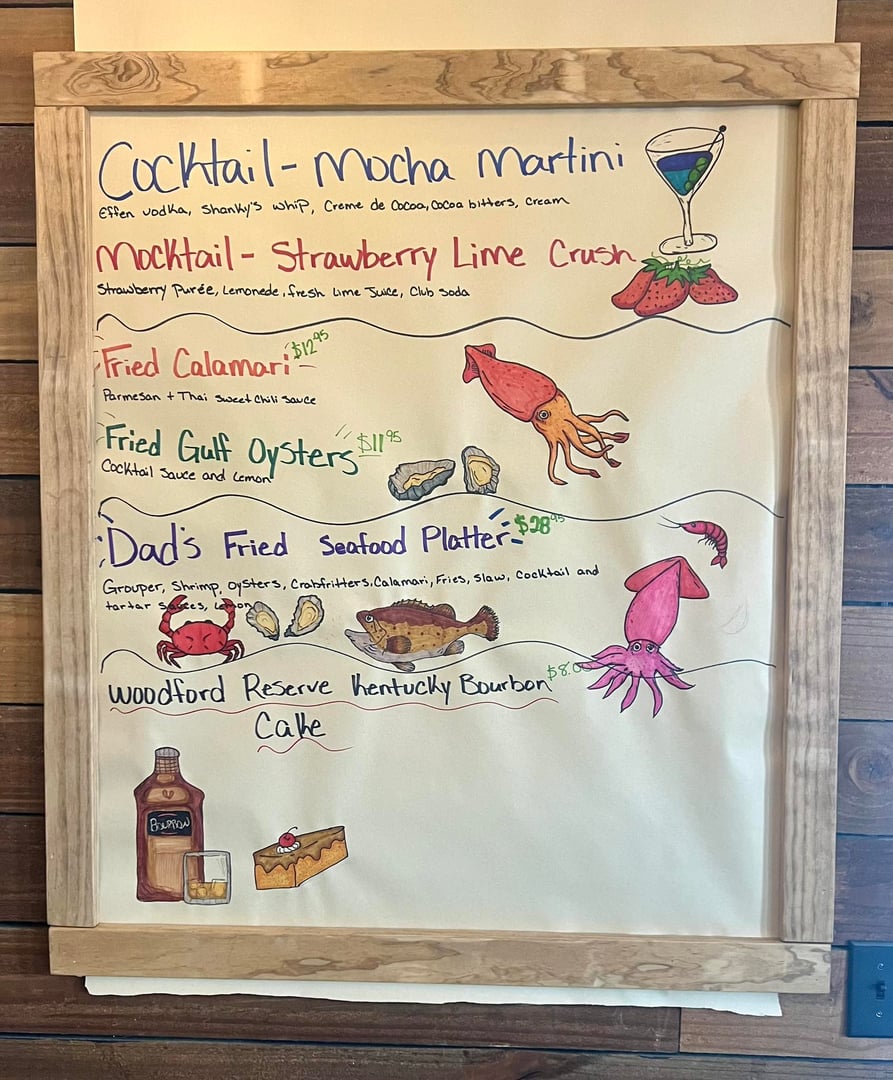 Cocktail - Mocha Martini
Effen vodka, Shanky's whip, Creme de Cocoa, Cocoa bitters, cream
Mocktail - Strawberry Lime Crush
Strawberry Purée, Lemonede, fresh Lime Juice, Club Soda
Fried Calamari - $12.95
Parmesan + Thai Sweet Chili Sauce
Fried Gulf Oysters $11.95
Cocktail Sauce and Lemon
Dad's Fried Seafood Platter - $28.95
Grouper, Shrimp, Oysters, Crabfritters, Calamari, Fries, Slaw, Cocktail and
tartar sauces, Lemon
Woodford Reserve Kentucky Bourbon $8.00
Cake
Bourbon